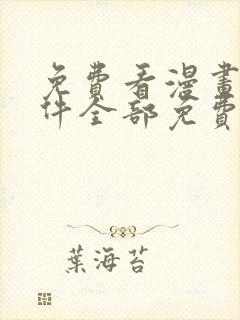 免費看漫畫
件全部免費
葉海苔